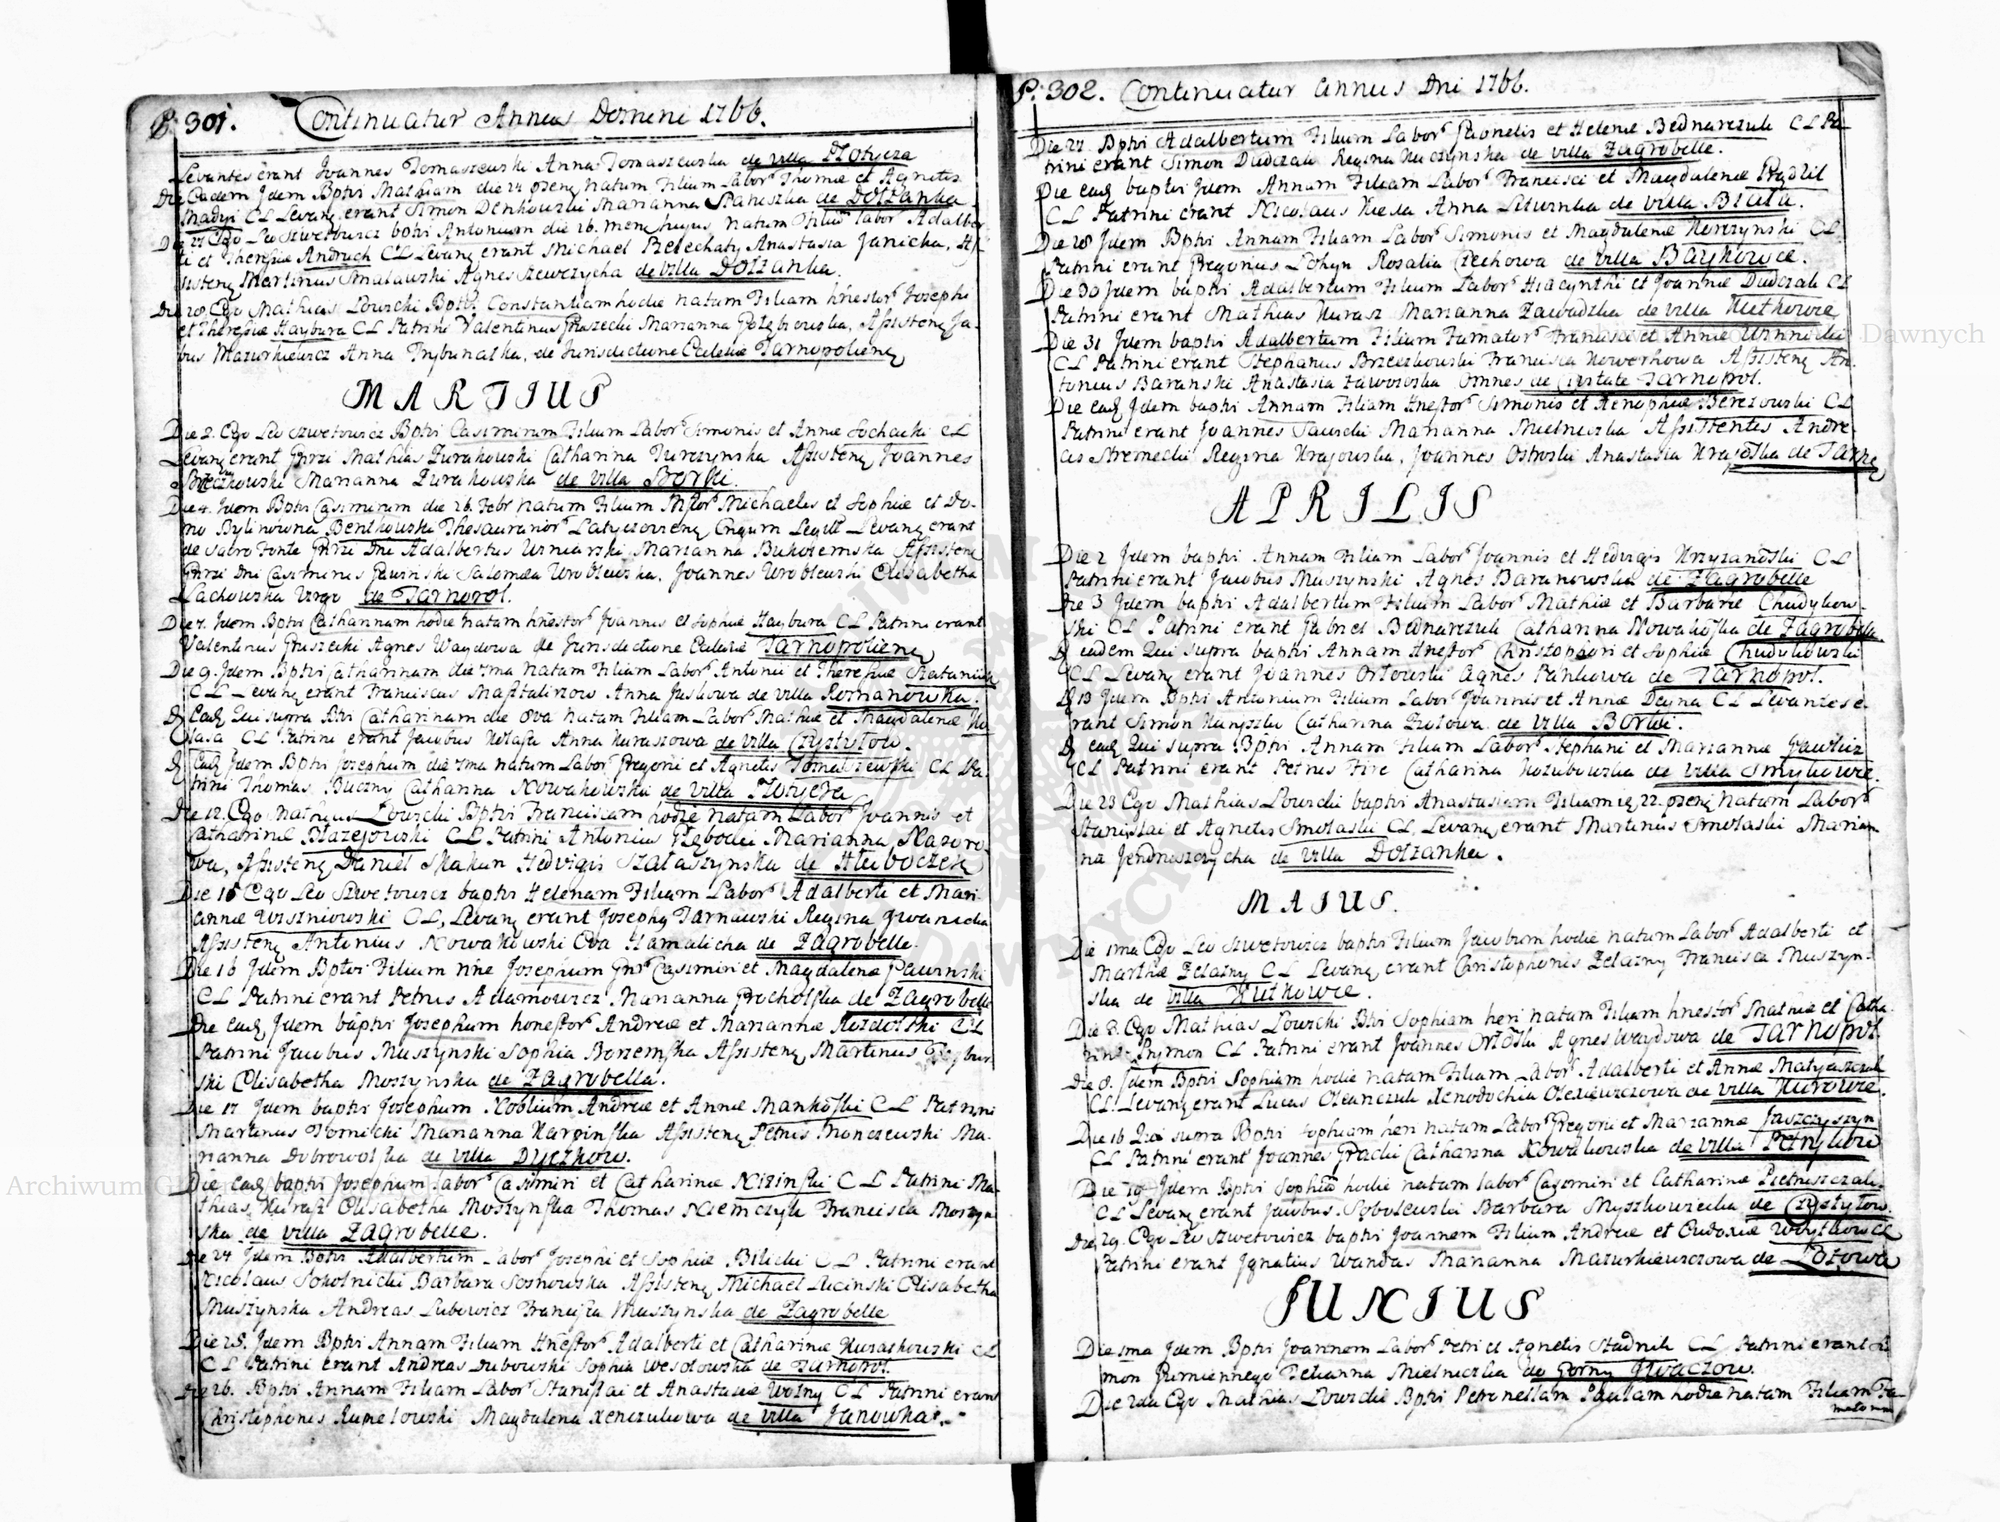 P. 301. Continuatur Annus Domini 1766.
Levantes erant Joannes Tomaszewski Anna Tomaszewska de villa Płotycza
Die Eadem Idem Bptvi Mathiam die 24 psens natum Filium Labor. Thomæ et Agnetis
Madyi CL Levans erant Simon Denkowski Marianna Staneczka de Dołżanka
Die 27 Ego Leo Szwetowicz bptvi Antonium die 26. mens hujus natum Filium labor Adalber
ti et Theresiæ Andruch CL Levans erant Michael Pelechaty Anastasia Janicha, As
sistens Martinus Smalawski Agnes Szewczycha de villa Dołżanka.
Die 28 Ego Mathias Łowicki Bptvi Constantiam hodie natam Filiam hnestor. Josephi
et Theresiæ Haybura CL Patrini Valentinus Gruszecki Marianna Gołębiowska, Assistens Ja-
bus Mazurkiewicz Anna Trybunalka, de Jurisdictione Ecclesiæ Tarnopoliens
MARTIUS
Die 2. Ego Leo Szwetowicz Bptvi Casimirum Filium Labor. Simonis et Annæ Sochacki CL
Levans erant Gnrsi Mathias Żurakowski Catharina Turczynska Assistens Joannes
Brzeczkowski Marianna Żurakowska de villa Borki.
Die 4. Idem Bptvi Casimirum die 26. Febr natum Filium Mgfcor. Michaelis et Sophiæ et Do-
mo Bylinowna Benikowski Thesaurarior. Latyczoviens Cngum Legitt Levans erant
de Sacro Fonte Gnrsi Dni Adalbertus Urniarski Marianna Bukojemska Assistens
Gnrsi Dni Casimirus Gawinski Salomea Wroblewska, Joannes Wroblewski Elisabetha
Lachowska Virgo de Tarnopol.
Die 7. Idem Bptvi Catharinam hodie natam hnestor. Joannis et Sophiæ Haybura CL Patrini erant
Valentinus Gruszecki Agnes Waydowa de Jurisdictione Ecclesiæ Tarnopoliens
Die 9. Idem Bptvi Catharinam die 7ma natam Filiam Labor. Antonii et Theresiæ
CL Levans erant Franciscus Masztalirzow Anna Juskowa de villa Romanowka.
D Eads Qui supra Bptvi Catharinam die 8va natam Filiam Labor. Mathiæ et Magdalenæ Ko
łasa CL Patrini erant Jacobus Kołasa Anna Kuraszowa de villa Czystyłow.
D Eads Idem Bptvi Josephum die 7ma natum Labor. Gregorii et Agnetis Tomaszewski CL Pa-
trini Thomas Buczny Catharina Nowakowski de villa Płotycza
Die 12. Ego Mathias Łowicki Bptvi Franciscam hodie natam Labor. Joannis et
Catharinæ Błażejowski CL Patrini Antonius Głębocki Marianna Nazoro-
wa, Assistens Daniel Skakun Hedvigis Szałaszynska de Hłuboczek
Die 16 Ego Leo Szwetowicz baptvi Helenam Filiam Labor. Adalberti et Mari-
annæ Wiszniowski CL, Levans erant Josephs Tarnawski Regina Iwanicka
Assistens Antonius Nowakowski Eva Hamalicha de Zagrobelle.
Die 16 Idem Bptvi Filium nne Josephum Gnr. Casimiri et Magdalenæ Gawinski
CL Patrini erant Petrus Adamowicz Marianna Grocholska de Zagrobelle
Die eads Idem baptvi Josephum honestor. Andreæ et Mariannæ Rozdolski CL
Patrini Jacobus Muszynski Sophia Borzemska Assistens Martinus
ski Elisabetha Moszynska de Zagrobella.
Die 17. Idem baptvi Josephum Nobilium Andreæ et Annæ Mankoski CL Patrini
Martinus Tornicki Marianna Karpinska Assistens Petrus Monczewski Ma-
rianna Dobrowolska de villa Dyczkow.
Die eads baptvi Josephum labor. Casimiri et Catharinæ Nizinski CL Patrini Ma-
thias Kurasz Elisabetha Moszynska Thomas Niemczyk Francisca Moszyn
ska de villa Zagrobelle.
Die 24 Idem Bptvi Adalbertum Labor. Josephi et Sophiæ Bilicki CL Patrini erant
Nicolaus Sokolnicki Barbara Sosnowska Assistens Michael Lucinski Elisabetha
Muszynska Andreas Lubowicz Francisca Muszynska de Zagrobelle
Die 25. Idem Bptvi Annam Filiam Hnestor. Adalberti et Catharinæ Kuraskowski CL
CL Patrini erant Andreas Dubowski Sophia Wesołowska de Tarnopol.
Die 26. Bptvi Annam Filiam Labor. Stanislai et Anastasiæ Wolny CL Patrini erant
Christophorus Rupelowski Magdalena Xenczukowa de villa Janowka.
P. 302. Continuatur annus Dni 1766.
Die 27. Bptvi Adalbertum Filium Labor. Paunelis et Helenæ Bednarczuk CL Pa-
trini erant Simon Dudczak Regina Muczynska de villa Zagrobelle.
Die eads baptvi Idem Annam Filiam Labor. Francisci et Magdalenæ Prądzil
CL Patrini erant Nicolaus Kiela Anna Liturnka de villa Biała.
Die 28 Idem Bptvi Annam Filiam Labor. Simonis et Magdalenæ Korczynski CL,
Patrini erant Gregorius Łohyn Rosalia Czechowa de villa Baykowce.
Die 30 Idem baptvi Adalbertum Filium Labor. Hiacynthi et Joannæ Dudczak CL
Patrini erant Mathias Kurasz Marianna Zawadzka de villa Kutkowce
Die 31 Idem baptvi Adalbertum Filium Famator. Francisci et Annæ Winnicki
CL Patrini erant Stephanus Brzeczkowski Francisca Nowerkowa Assistens An-
tonius Baranski Anastasia Jaworoska Omnes de Civitate Tarnopol.
Die eads Idem baptvi Annam Filiam Hnestor. Simonis et Xenophiæ Berezowski CL
Patrini erant Joannes Sawicki Marianna Mielniczka Assistentes Andre-
as Stremecki Regina Krajowska, Joannes Ostroski Anastasia Krajoska de Tarns
APRILIS
Die 2 Idem baptvi Annam Filiam Labor. Joannis et Hedvigis Krzyżanoski CL
Patrini erant Jacobus Muszynski Agnes Baranowska de Zagrobelle
Die 3 Idem baptvi Adalbertum Filium Labor. Mathiæ et Barbaræ Chudykow-
ski CL Patrini erant Gabriel Bednarczuk Catharina Nowakoska de Zagrobella
D eadem Qui supra baptvi Annam Hnestor. Christophori et Sophiæ Chudykowski
CL Levans erant Joannes Orłowski Agnes Pankowa de Tarnopol.
D 13 Idem Bptvi Antonium Filium Labor. Joannis et Annæ Deyna CL Levantes e-
rant Simon Kunyszka Catharina Żułowa de villa Borki.
D eads Qui supra Bptvi Annam Filiam Labor. Stephani et Mariannæ Gawlicz
CL Patrini erant Petrus Fire Catharina Kozubowska de villa Smykowce.
Die 23 Ego Mathias Łowicki baptvi Anastasiam Filiam 22. psens natam Labor.
Stanislai et Agnetis Smolaski CL, Levans erant Martinus Smolaski Marian
na Jendruszczycha de villa Dołżanka.
MAIUS.
Die 1ma Ego Leo Szwetowicz baptvi Filium Jacobum hodie natum Labor. Adalberti et
Marthæ Żelazny CL Levans erant Christophorus Żelazny Francisca Muszyn-
ska de villa Kutkowce.
Die 8. Ego Mathias Łowicki Bptvi Sophiam heri natam Filiam hnestor. Mathiæ et Catha-
rinæ Rymon CL Patrini erant Joannes Orłoski Agnes Waydowa de Tarnopol.
Die 8. Idem Bptvi Sophiam hodie natam Filiam Labor. Adalberti et Annæ Matyaszczuk
CL. Levans erant Lucas Oleanczuk Xenodochia Olexiewiczowa de villa Kurowce.
Die 16 Qui supra Bptvi Sophiam heri natam Labor. Gregorii et Mariannæ Juszczyszyn
CL Patrini erant Joannes Gracki Catharina Nowakowska de villa Petrykow
Die 19 Idem Bptvi Sophia hodie natam labor. Casimiri et Catharinæ Pietruszczak.
CL Levans erant Jacobus Sobolewski Barbara Myszkowiecka de Czystyłow.
Die 29. Ego Leo Szwetowicz baptvi Joannem Filium Andreæ et Eudoxiæ Woytkow CL
Patrini erant Ignatius Wandas Marianna Mazurkiewiczowa de Łozowa
JUNIUS
Die 1ma Idem Bptvi Joannem Labor. Petri et Agnetis Stadnik CL Patrini erant Si
mon Gumiennego Tekianna Mielniczka de Gorny Iwaczow.
Die 2da Ego Mathias Łowicki Bptvi Petronellam Paulam hodie natam Filiam Fa-
matorum